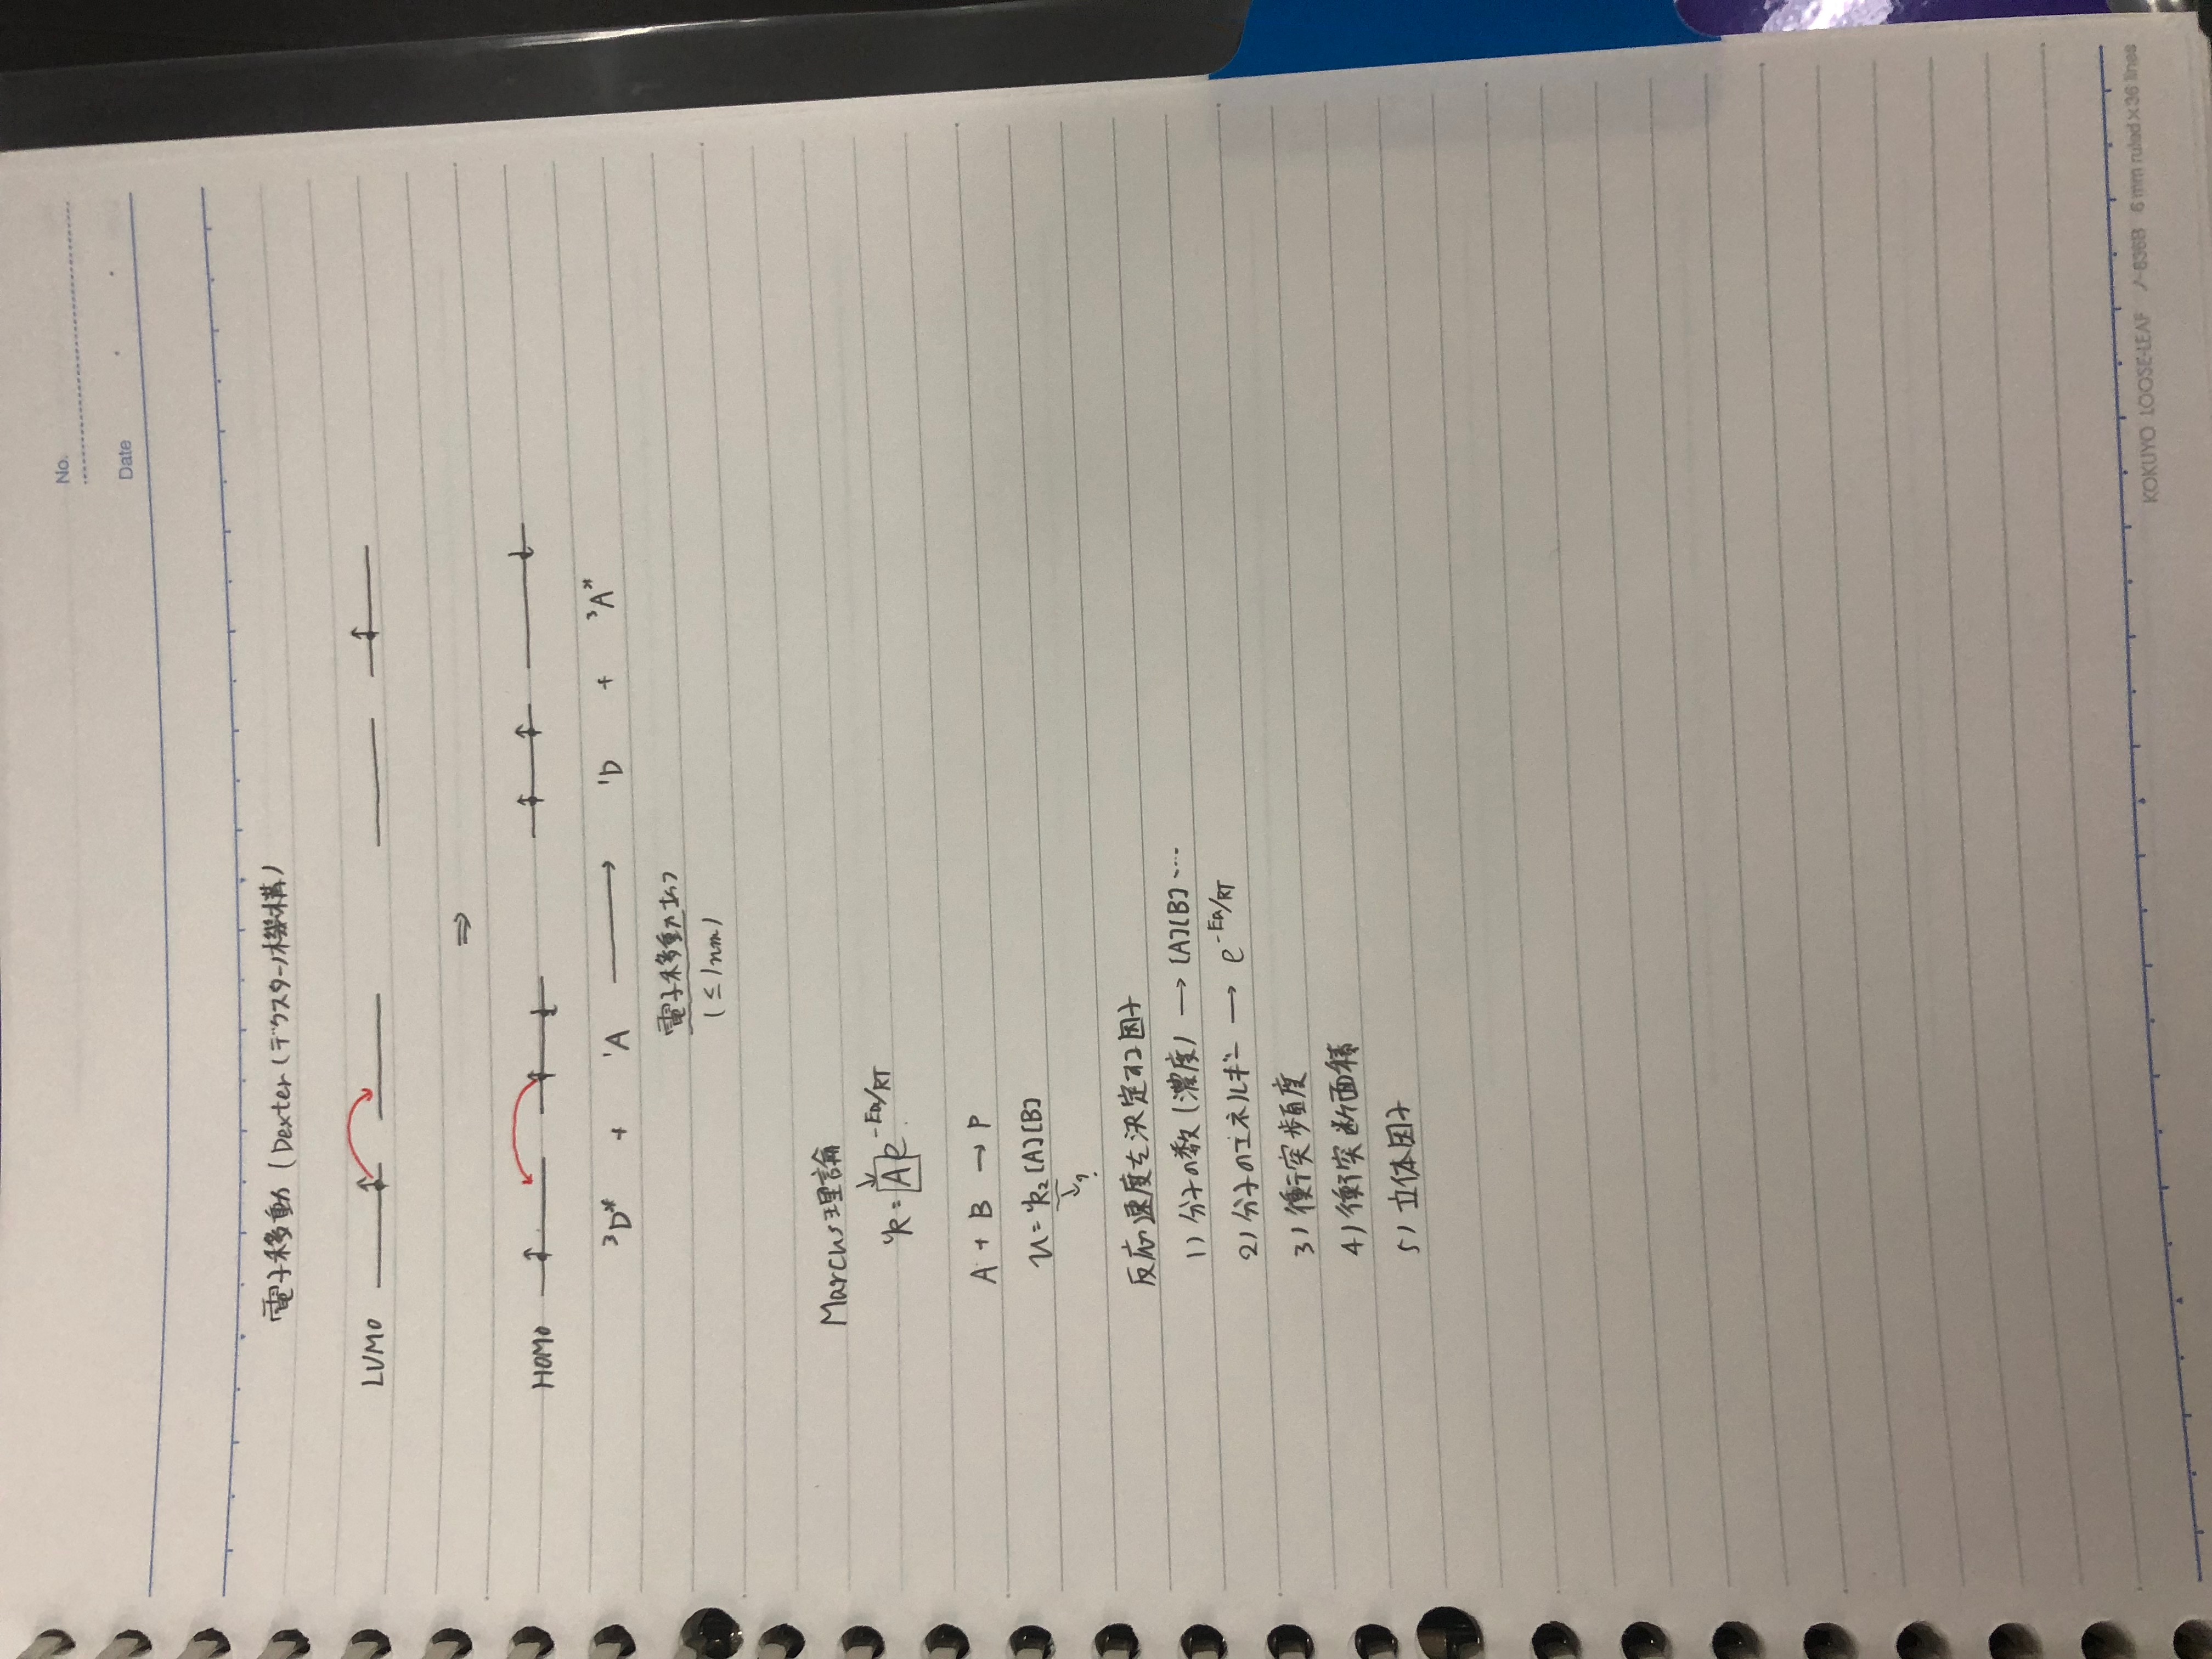 No.
Date
電子移動 (Dexter(デクスター)機構)
LUMO
⇒
HOMO
³D* + ¹A → ¹D + ³A*
電子移動
(≤1nm)
Marcus理論
↓
k = A e^-Ea/RT
A + B → P
v = k₂[A][B]
↓?
反応速度を決定する因子
1) 分子の数(濃度) → [A][B]…
2) 分子のエネルギー → e^-Ea/RT
3) 衝突頻度
4) 衝突断面積
5) 立体因子
KOKUYO LOOSE-LEAF ノ-836B 6 mm ruled×36 lines